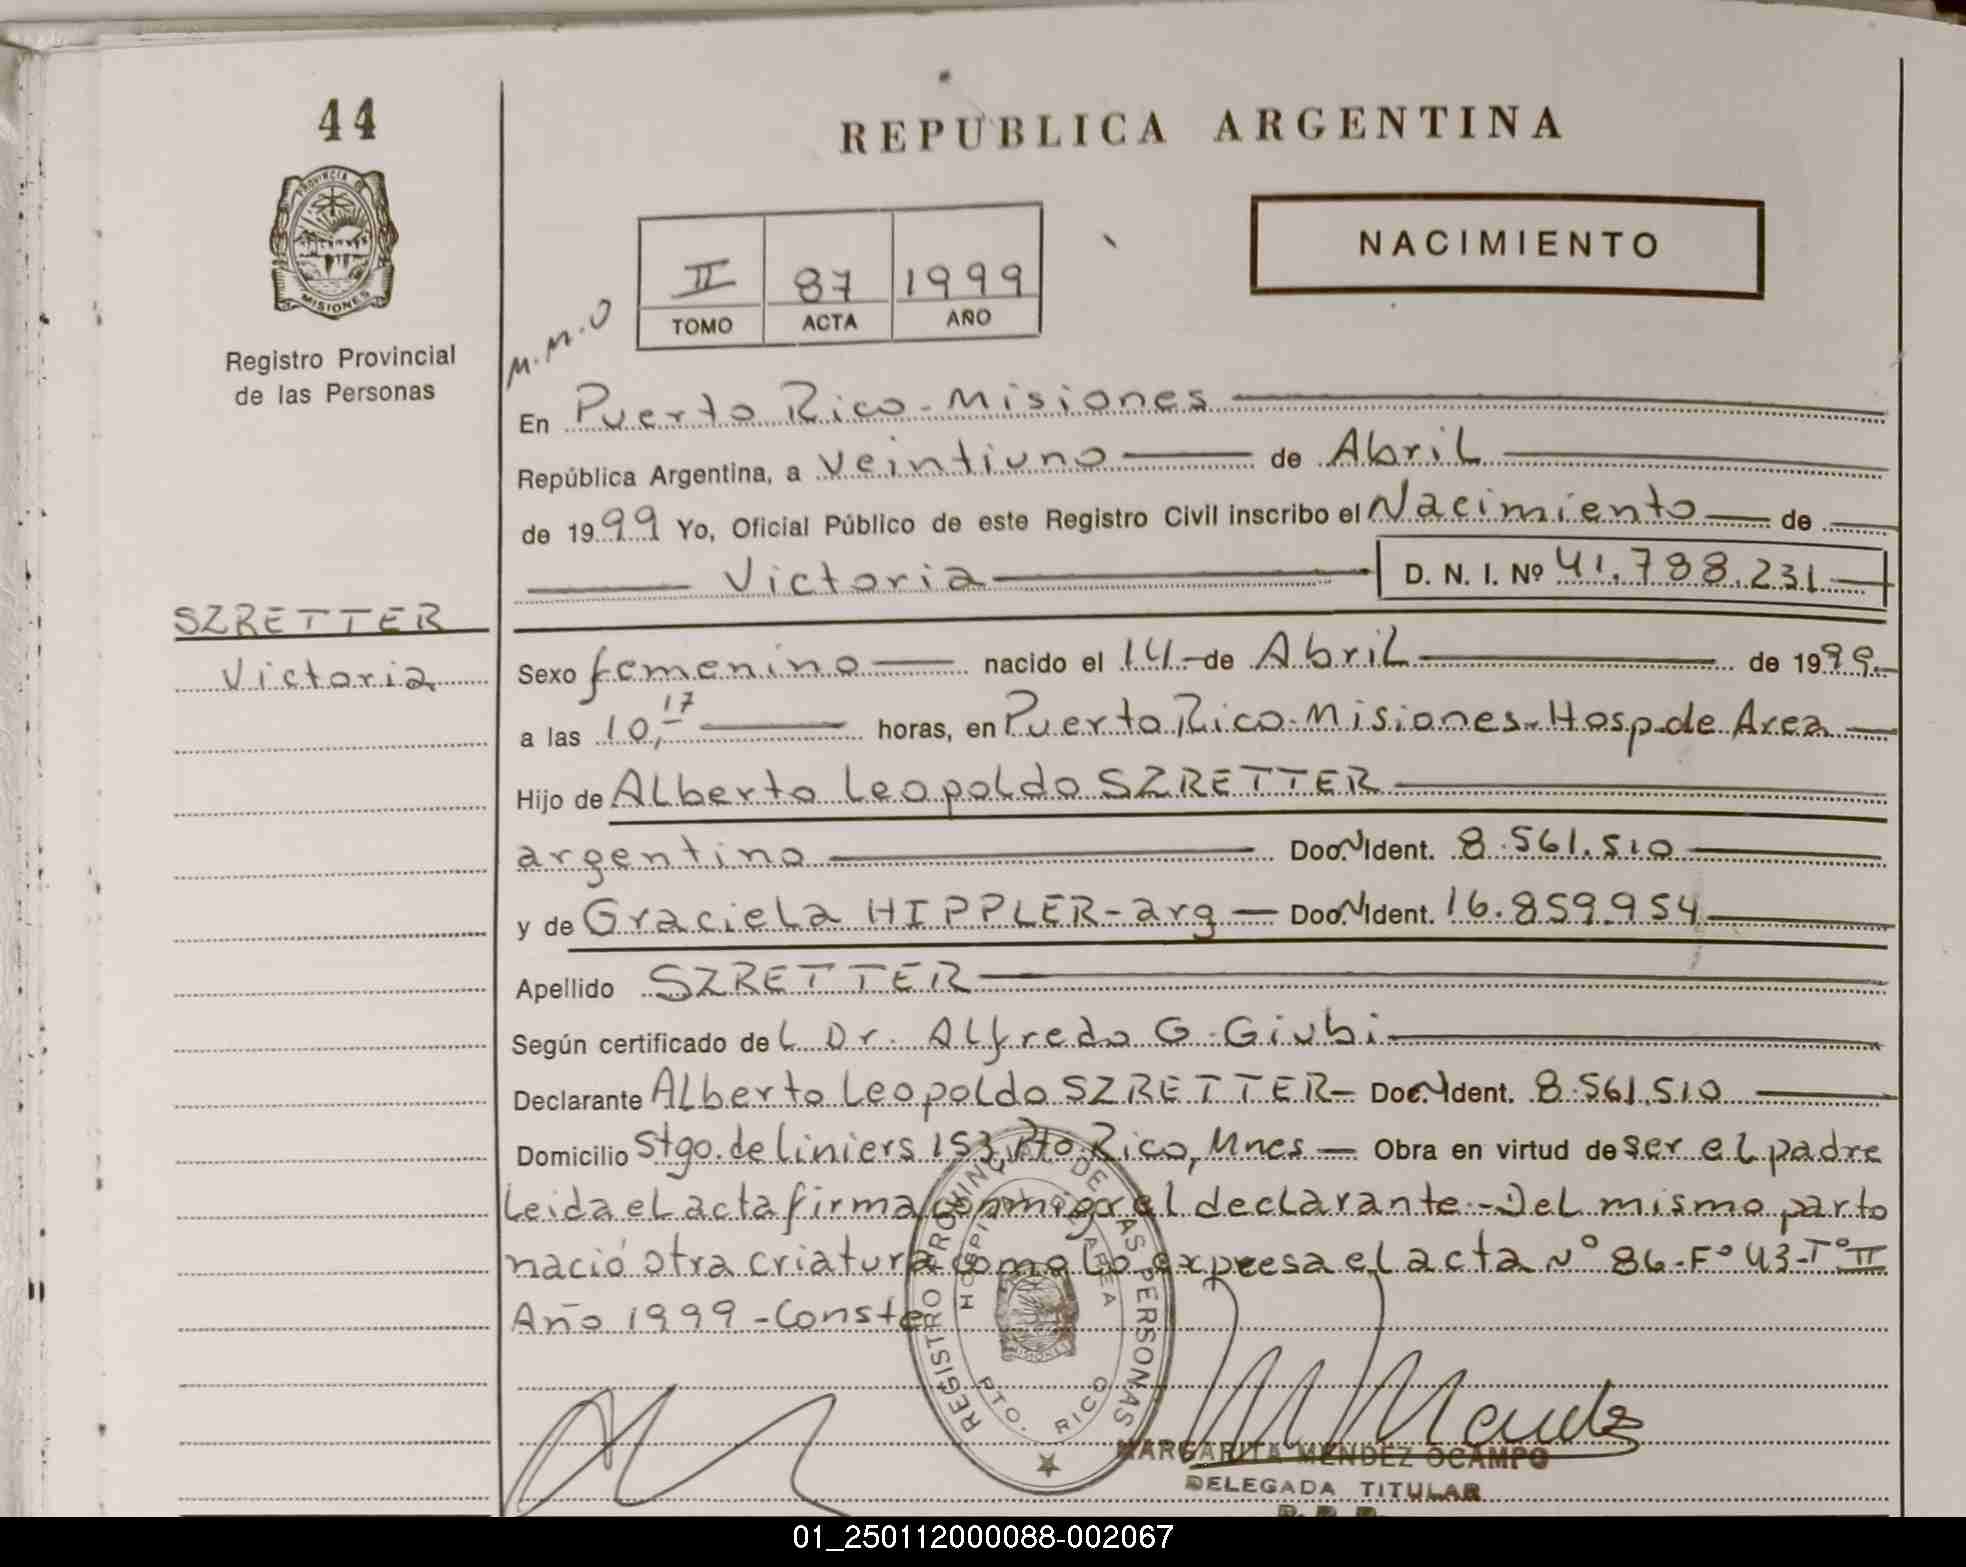 44
REPUBLICA ARGENTINA
PROVINCIA DE
MISIONES
NACIMIENTO
II 87 1999
TOMO ACTA AÑO
M.M.O
Registro Provincial
de las Personas
En Puerto Rico - Misiones
República Argentina, a Veintiuno de Abril
de 1999 Yo, Oficial Público de este Registro Civil inscribo el Nacimiento de
Victoria D. N. I. Nº 41.788.231
SZRETTER
Victoria
Sexo femenino nacido el 14 - de Abril de 1999.
a las 10,17 horas, en Puerto Rico - Misiones - Hosp. de Area
Hijo de Alberto Leopoldo SZRETTER
argentino Doc. N Ident. 8.561.510
y de Graciela HIPPLER - arg Doc. N Ident. 16.859.954
Apellido SZRETTER
Según certificado del Dr. Alfredo G. Giubi
Declarante Alberto Leopoldo SZRETTER - Doc. N Ident. 8.561.510
Domicilio Stgo. de Liniers 153, Pto Rico, Mnes - Obra en virtud de ser el padre
Leida el acta firma conmigo el declarante - Del mismo parto
nació otra criatura como lo expresa el acta Nº 86 - Fº 43 - Tº II
Año 1999 - Conste
REGISTRO PROVINCIAL DE LAS PERSONAS
HOSPITAL DE AREA
MISIONES
PTO. RICO
MARGARITA MENDEZ OCAMPO
DELEGADA TITULAR
01_250112000088-002067